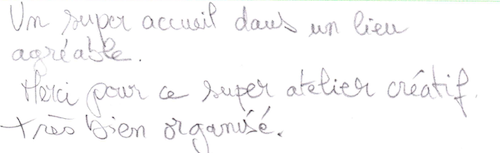 Un super accueil dans un lieu
agréable.
Merci pour ce super atelier créatif.
très bien organisé.